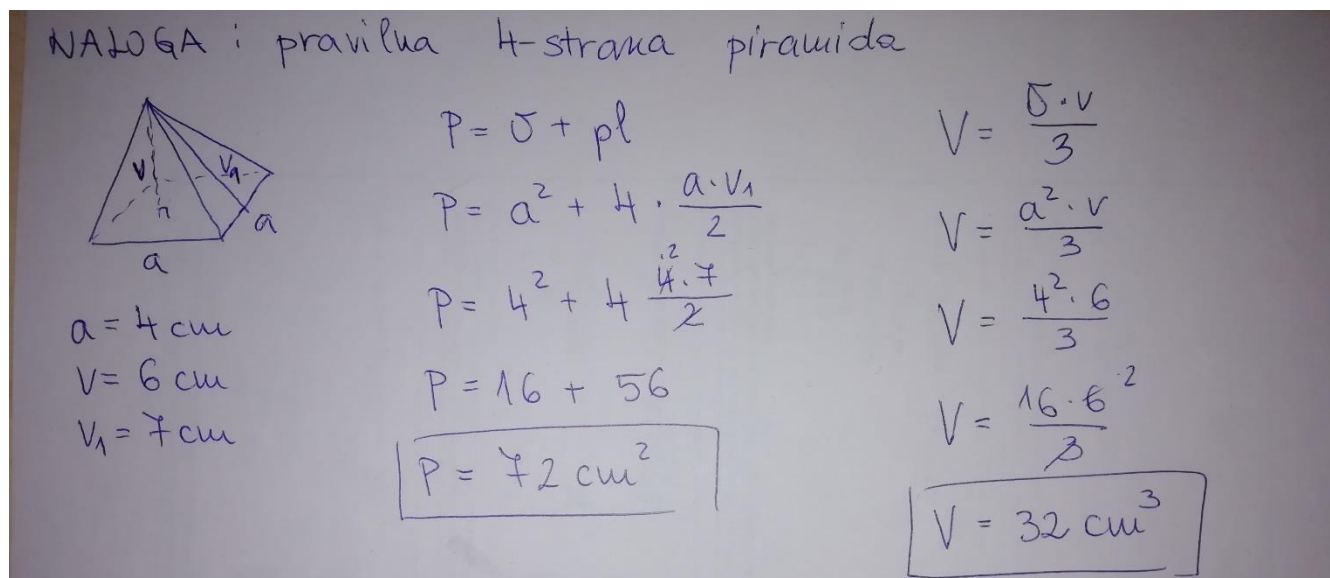 NALOGA : pravilna 4-strana piramida
v
v₁
a
a
a = 4 cm
v = 6 cm
v₁ = 7 cm
P = O + pl
P = a² + 4 · a·v₁/2
P = 4² + 4 4·7/2 ·2
P = 16 + 56
P = 72 cm²
V = O·v/3
V = a²·v/3
V = 4²·6/3
V = 16·6/3 ·2
V = 32 cm³